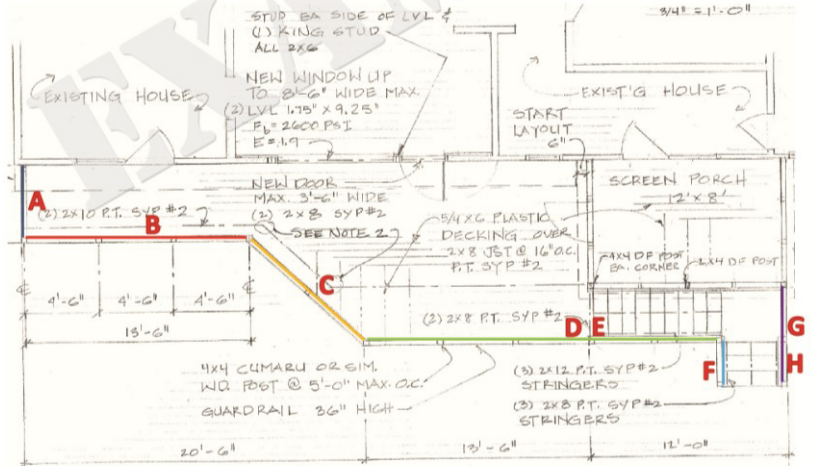 EXAM
STUD EA SIDE OF LVL &
(1) KING STUD
ALL 2X6
3/4" = 1'-0"
EXISTING HOUSE
NEW WINDOW UP
TO 8'-6" WIDE MAX.
(2) LVL 1.75" X 9.25"
Fb = 2600 PSI
E = 1.9
EXIST'G HOUSE
START
LAYOUT
6"
A
B
(2) 2X10 P.T. SYP #2
NEW DOOR
MAX. 3'-6" WIDE
(2) 2X8 SYP #2
SEE NOTE 2
SCREEN PORCH
12' X 8'
5/4X6 PLASTIC
DECKING OVER
2X8 JST @ 16" O.C.
P.T. SYP #2
4X4 DF POST
EA. CORNER
2X4 DF POST
C
4'-6"
4'-6"
4'-6"
13'-6"
(2) 2X8 P.T. SYP #2
D
E
G
F
H
4X4 CUMARU OR SIM.
WD. POST @ 5'-0" MAX. O.C.
GUARDRAIL 36" HIGH
(3) 2X12 P.T. SYP #2
STRINGERS
(3) 2X8 P.T. SYP #2
STRINGERS
20'-6"
13'-6"
12'-0"